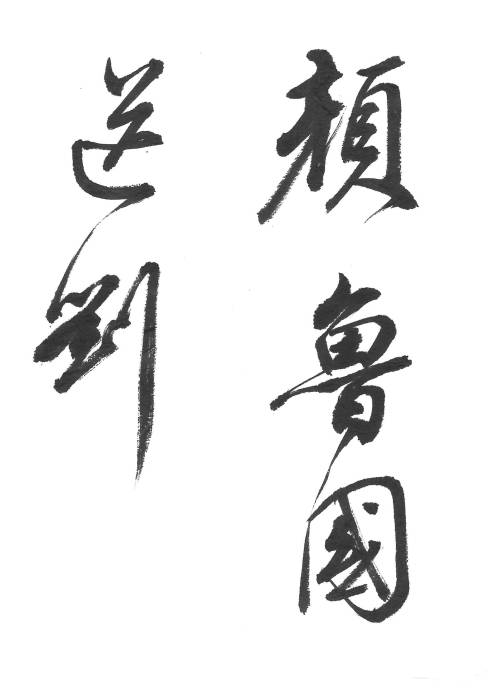 顏魯國
送劉